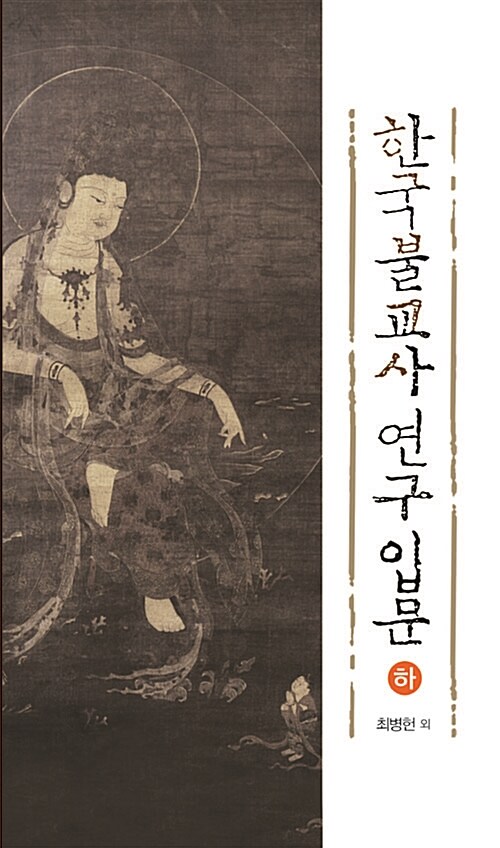 한국불교사 연구 입문
하
최병헌 외